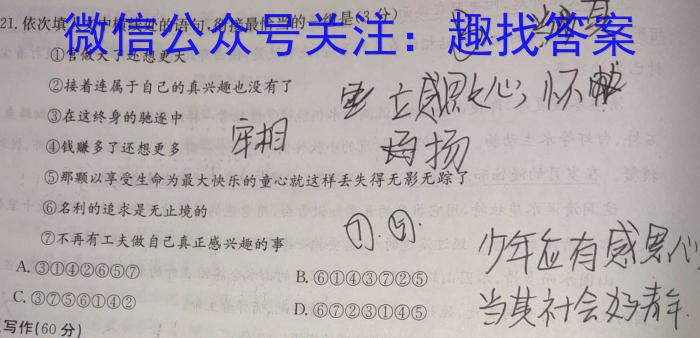 21.依次填入文中横线处的语句,衔接最恰当的一组是(3分)
微信公众号关注：趣找答案
①官做大了还想更大
②接着连属于自己的真兴趣也没有了
③在这终身的驰逐中
④钱赚多了还想更多
⑤那颗以享受生命为最大快乐的童心就这样丢失得无影无踪了
⑥名利的追求是无止境的
⑦不再有工夫做自己真正感兴趣的事
A.③①④②⑥⑤⑦
B.⑥①④③⑦②⑤
C.③⑦⑤⑥①④②
D.⑥⑦②③①④⑤
写作(60分)
立感恩之心,怀
扬
⑦.⑤.
少年应有感恩心
当其社会好青年